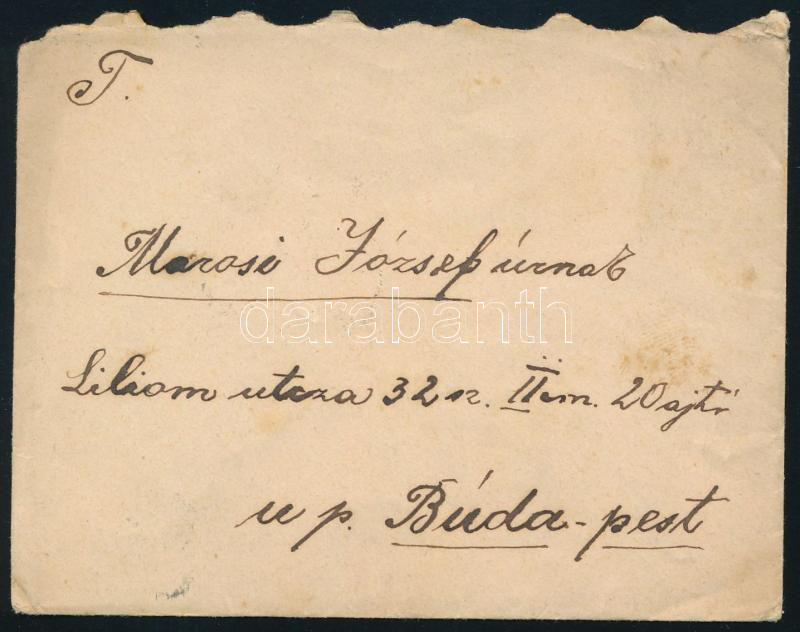 T.
Marosi József úrnak
darabanth
Liliom utcza 32 sz. II em. 20 ajtó
u p. Búda-pest